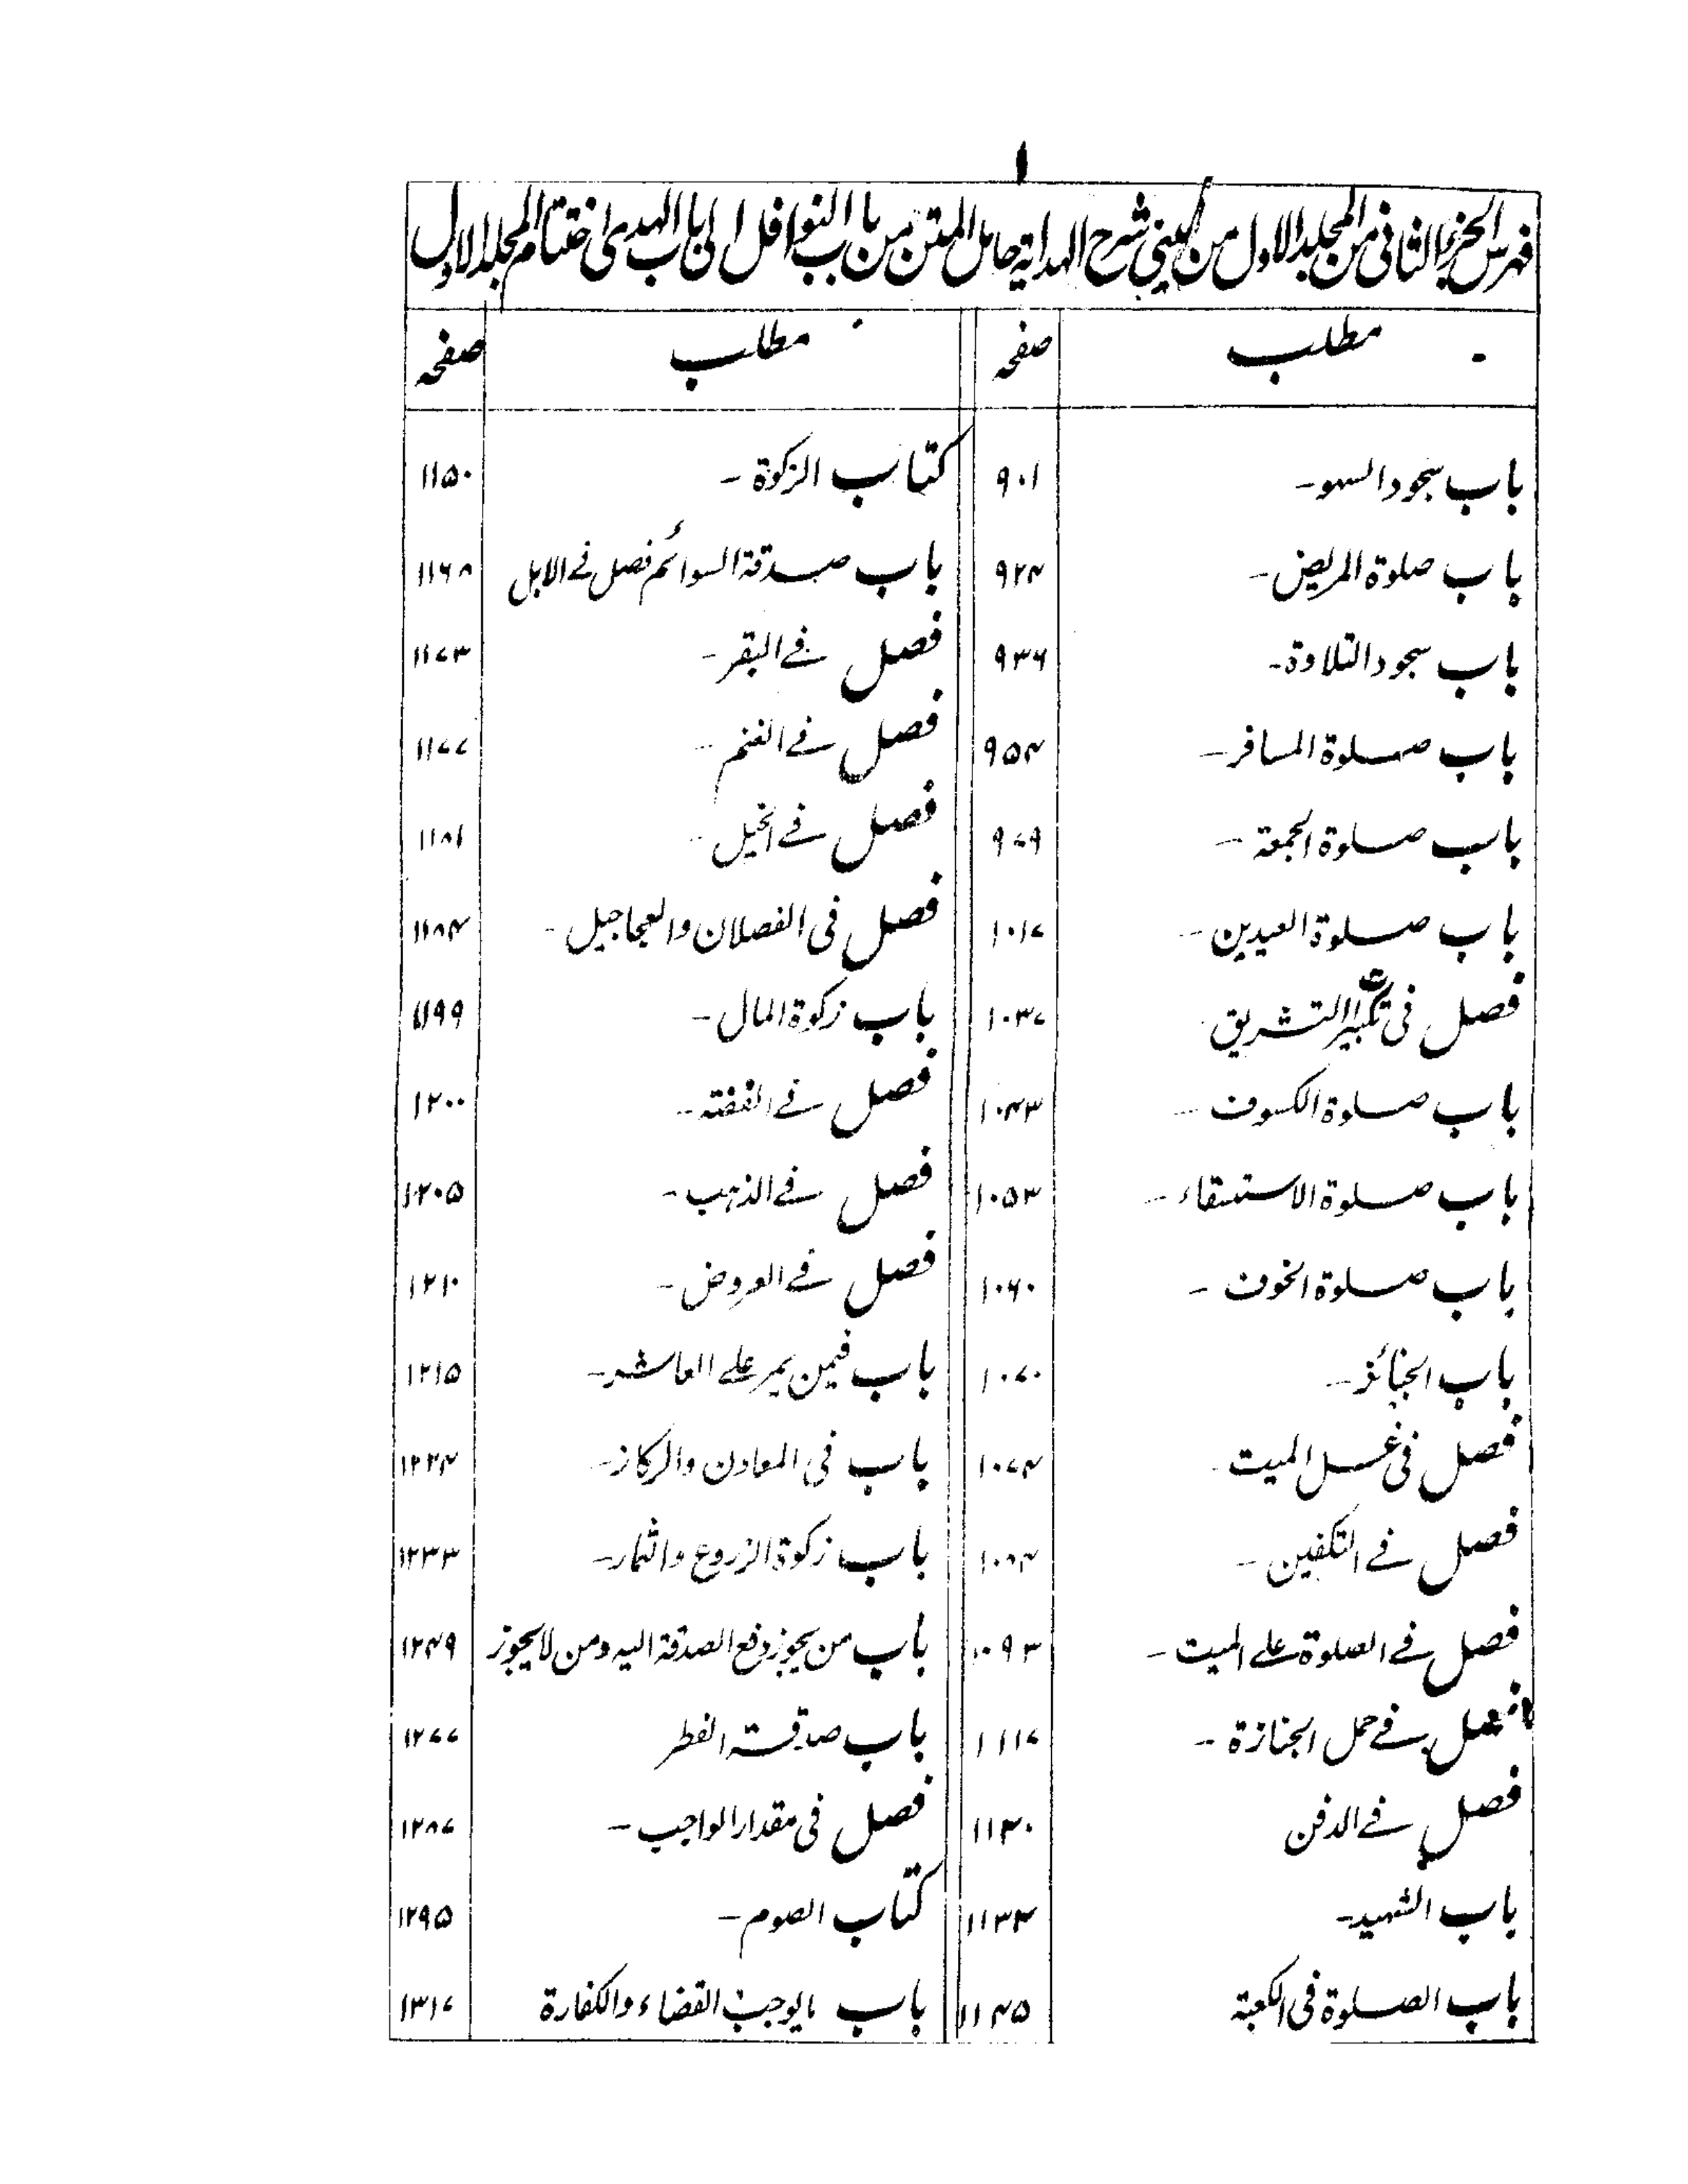 ١
فهرس الجزء الثانی من المجلد الاول من العینی شرح الهدایة حامل المتن من باب النوافل الی باب الهدی اختتام المجلد الاول
مطلب صفحه مطلب صفحه
باب سجود السهو - ۹۰۱ کتاب الزکوة - ۱۱۵۰
باب صلوة المریض - ۹۲۴ باب صدقة السوائم فصل فے الابل ۱۱۶۸
باب سجود التلاوة - ۹۳۶ فصل فے البقر - ۱۱۷۳
باب صلوة المسافر - ۹۵۴ فصل فے الغنم - ۱۱۷۷
باب صلوة الجمعة - ۹۷۹ فصل فے الخیل - ۱۱۸۱
باب صلوة العیدین - ۱۰۱۷ فصل فی الفصلان والعجاجیل - ۱۱۸۴
فصل فی تکبیرات التشریق ۱۰۳۷ باب زکوة المال - ۱۱۹۹
باب صلوة الکسوف - ۱۰۴۳ فصل فے الفضة - ۱۲۰۰
باب صلوة الاستسقاء - ۱۰۵۳ فصل فے الذهب - ۱۲۰۵
باب صلوة الخوف - ۱۰۶۰ فصل فے العروض - ۱۲۱۰
باب الجنائز - ۱۰۷۰ باب فیمن یمر علے العاشر - ۱۲۱۵
فصل فی غسل المیت - ۱۰۷۴ باب فی المعادن والرکاز - ۱۲۲۴
فصل فے التکفین - ۱۰۸۴ باب زکوة الزروع والثمار - ۱۲۳۳
فصل فے الصلوة علے المیت - ۱۰۹۳ باب من یجوز دفع الصدقة الیه ومن لا یجوز ۱۲۴۹
فصل فے حمل الجنازة - ۱۱۱۷ باب صدقة الفطر ۱۲۷۷
فصل فے الدفن ۱۱۳۰ فصل فی مقدار الواجب - ۱۲۸۷
باب الشهید - ۱۱۳۳ کتاب الصوم - ۱۲۹۵
باب الصلوة فی الکعبة ۱۱۴۵ باب مایوجب القضاء والکفارة ۱۳۱۷